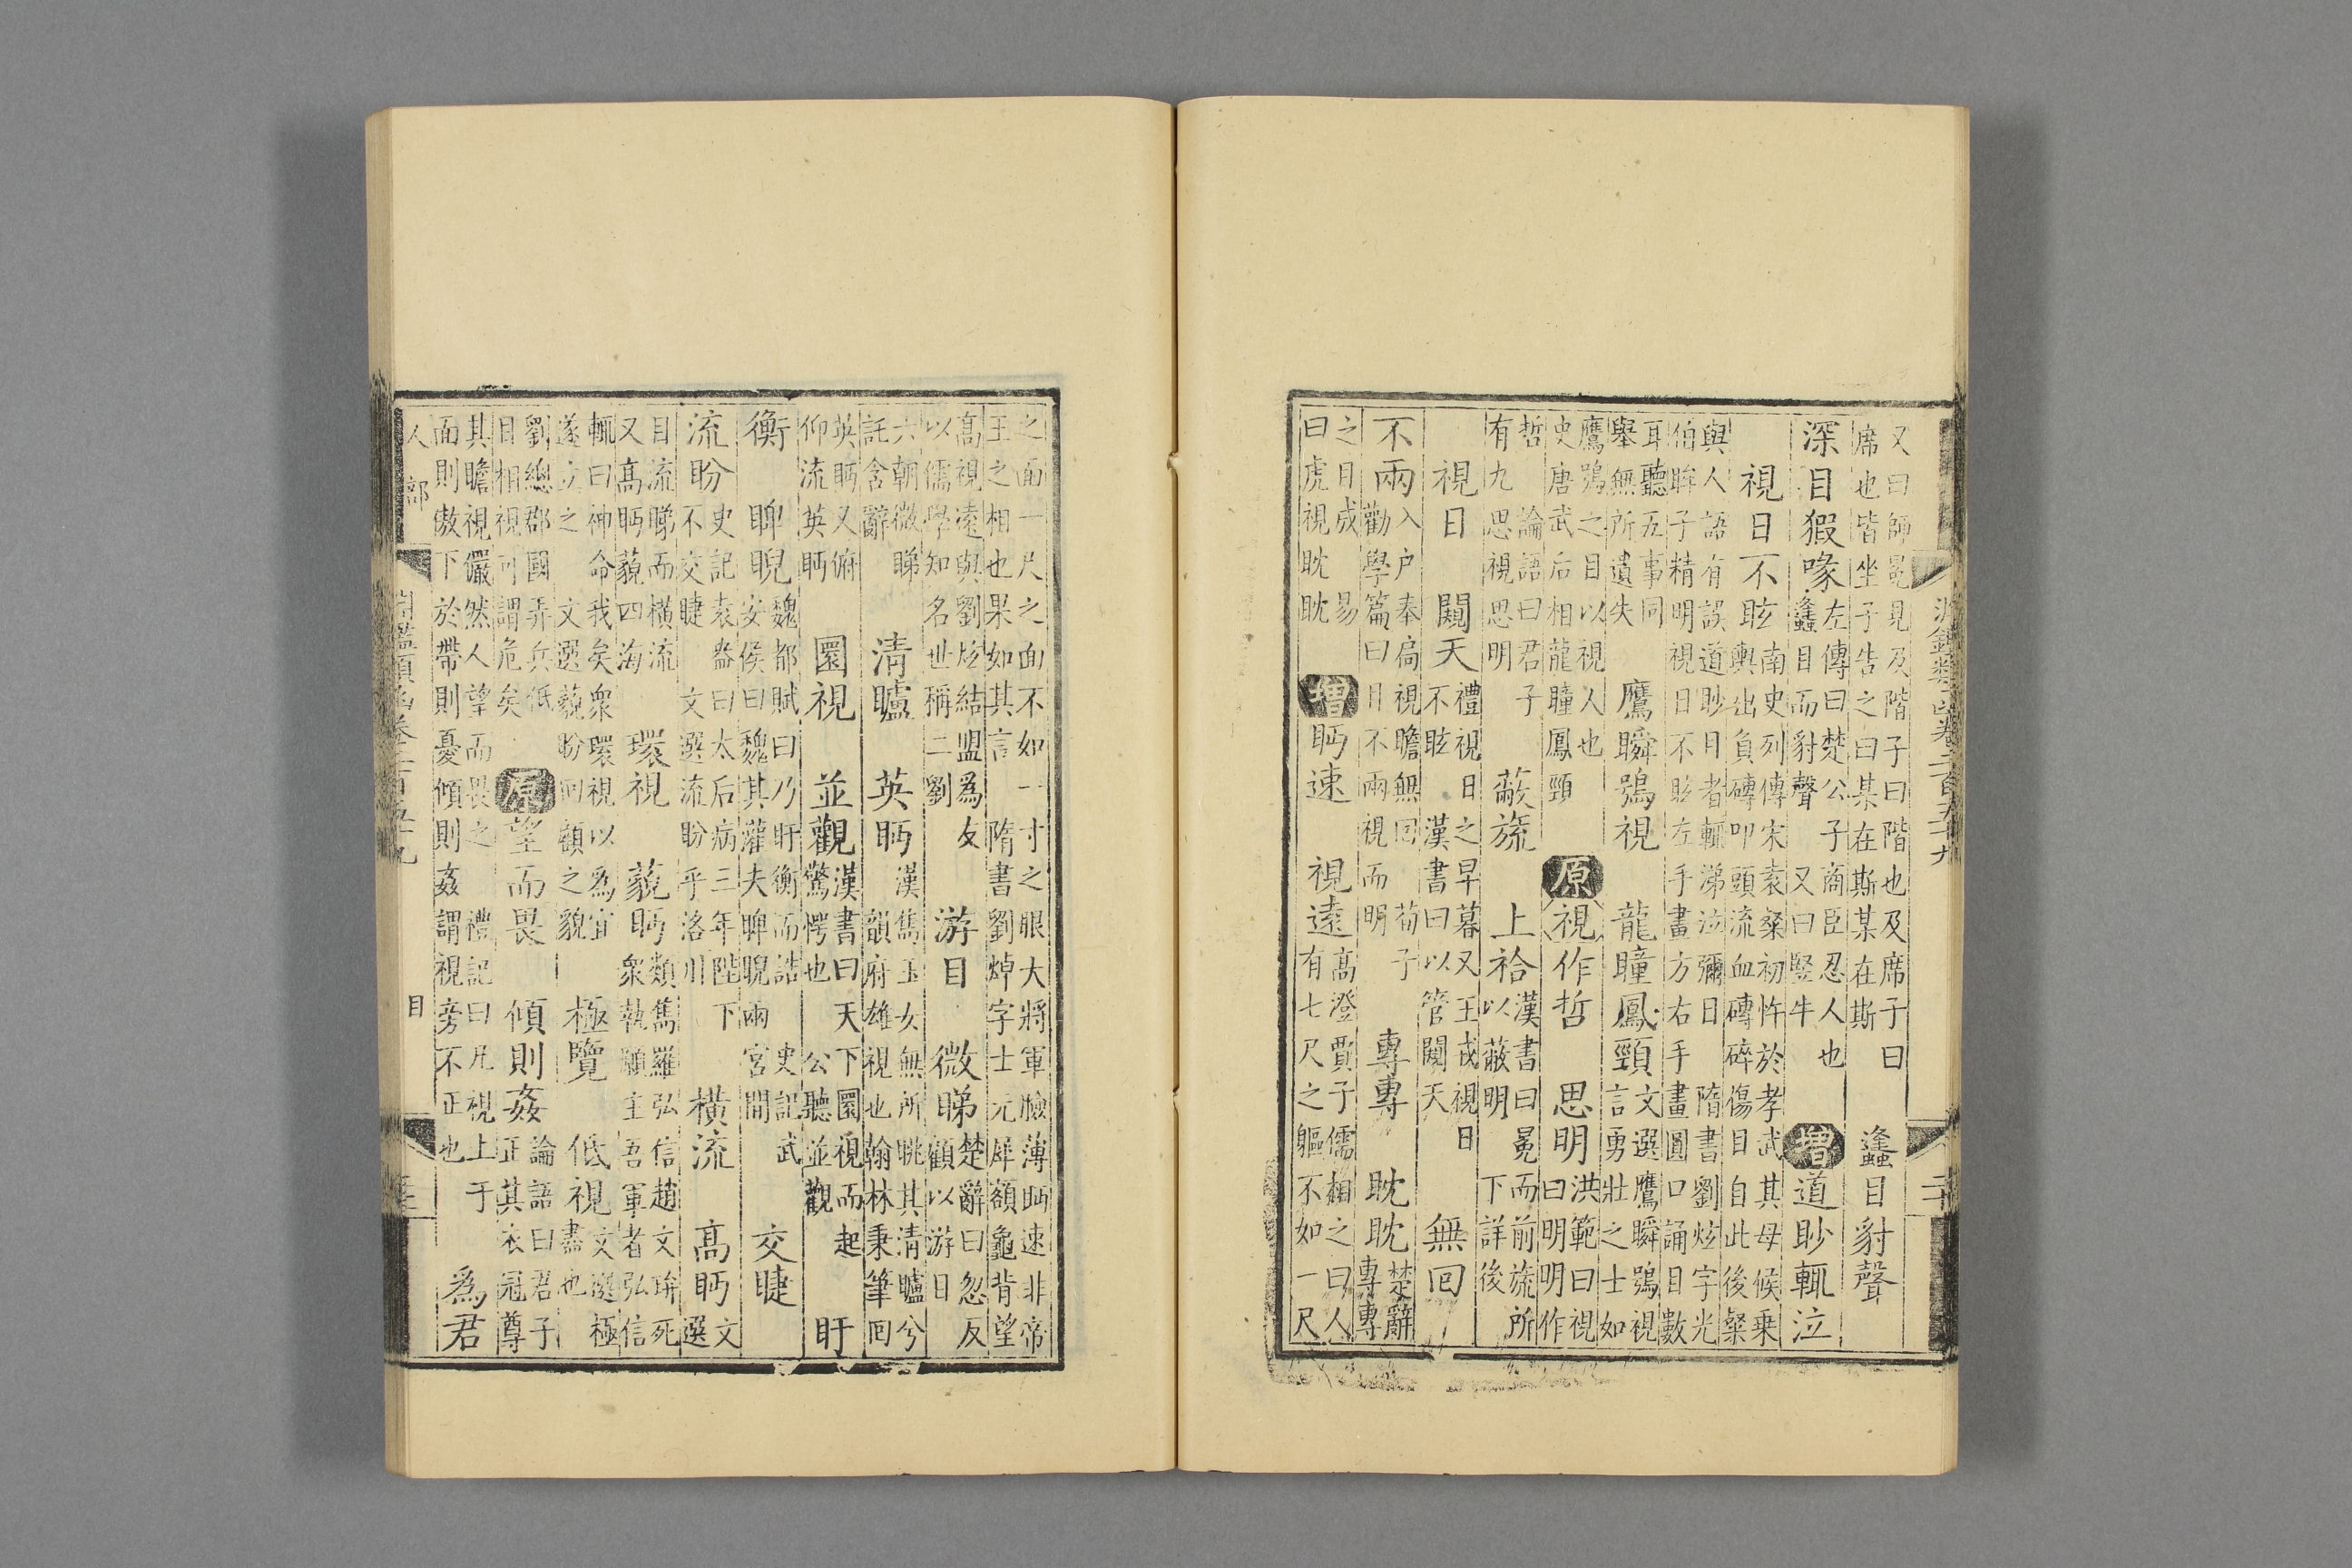 淵鑑類函卷二百五十九
又曰師冕見及階子曰階也及席子曰
席也皆坐子告之曰某在斯某在斯
蠭目豺聲
深目猳喙
左傳曰楚公子商臣忍人也
蠭目而豺聲 又曰豎牛
增道眇輒泣
視日不眩
南史列傳宋袁粲初忤於孝武其母候乗
輿出負磚叩頭流血磚碎傷目自此後粲
與人語有誤道眇目者輒涕泣彌日 隋書劉炫字光
伯眸子精明視日不眩左手畫方右手畫圓口誦目數
耳聽五事同
舉無所遺失
鷹瞬鶚視 龍瞳鳳頸
文選鷹瞬鶚視
言勇壯之士如
鷹鶚之目以視人也
史唐武后相龍瞳鳳頸
原視作哲 思明
洪範曰視
曰明明作
哲 論語曰君子
有九思視思明
蔽旒 上袷
漢書曰冕而前旒所
以蔽明 下詳後
視日 闚天
禮視日之早暮又王戎視日
不眩 漢書曰以管闚天
無回
不兩
入户奉扃視瞻無回 荀子
勸學篇曰目不兩視而明
專專 眈眈
楚辭
專專
之目成 易
曰虎視眈眈
增眄速 視遠
高澄賈子儒相之曰人
有七尺之軀不如一尺
之面一尺之面不如一寸之眼大將軍臉薄眄速非帝
王之相也果如其言 隋書劉焯字士元犀額龜背望
高視遠與劉炫結盟爲友
以儒學知名世稱二劉
游目 微睇
楚辭曰忽反
顧以游目
六朝微睇
託含辭
清矑 英眄
漢雋玉女無所眺其清矑兮
韻府雄視也翰林秉筆回
英眄又俯
仰流英眄
圜視 並觀
漢書曰天下圜視而起
驚愕也 公聽並觀
盱
衡 睥睨
魏都賦曰乃盱衡而誥 史記武
安侯曰魏其灌夫睥睨兩宮間
交睫
流盼
史記袁盎曰太后病三年陛下
不交睫 文選流盼乎洛川
橫流 高眄
文
選
目流睇而橫流
又高眄藐四海
環視 藐眄
類雋羅弘信趙文㺹死
衆執願主吾軍者弘信
輒曰神命我矣衆環視以爲宜
遂立之 文選藐盼回顧之貌
極覽 低視
文選極
盡也
劉總郡國弄兵低
目相視可謂危矣
原望而畏 傾則姦
論語曰君子
正其衣冠尊
其瞻視儼然人望而畏之 禮記曰凡視上于
面則傲下於帶則憂傾則姦謂視旁不正也
爲君
人部
目